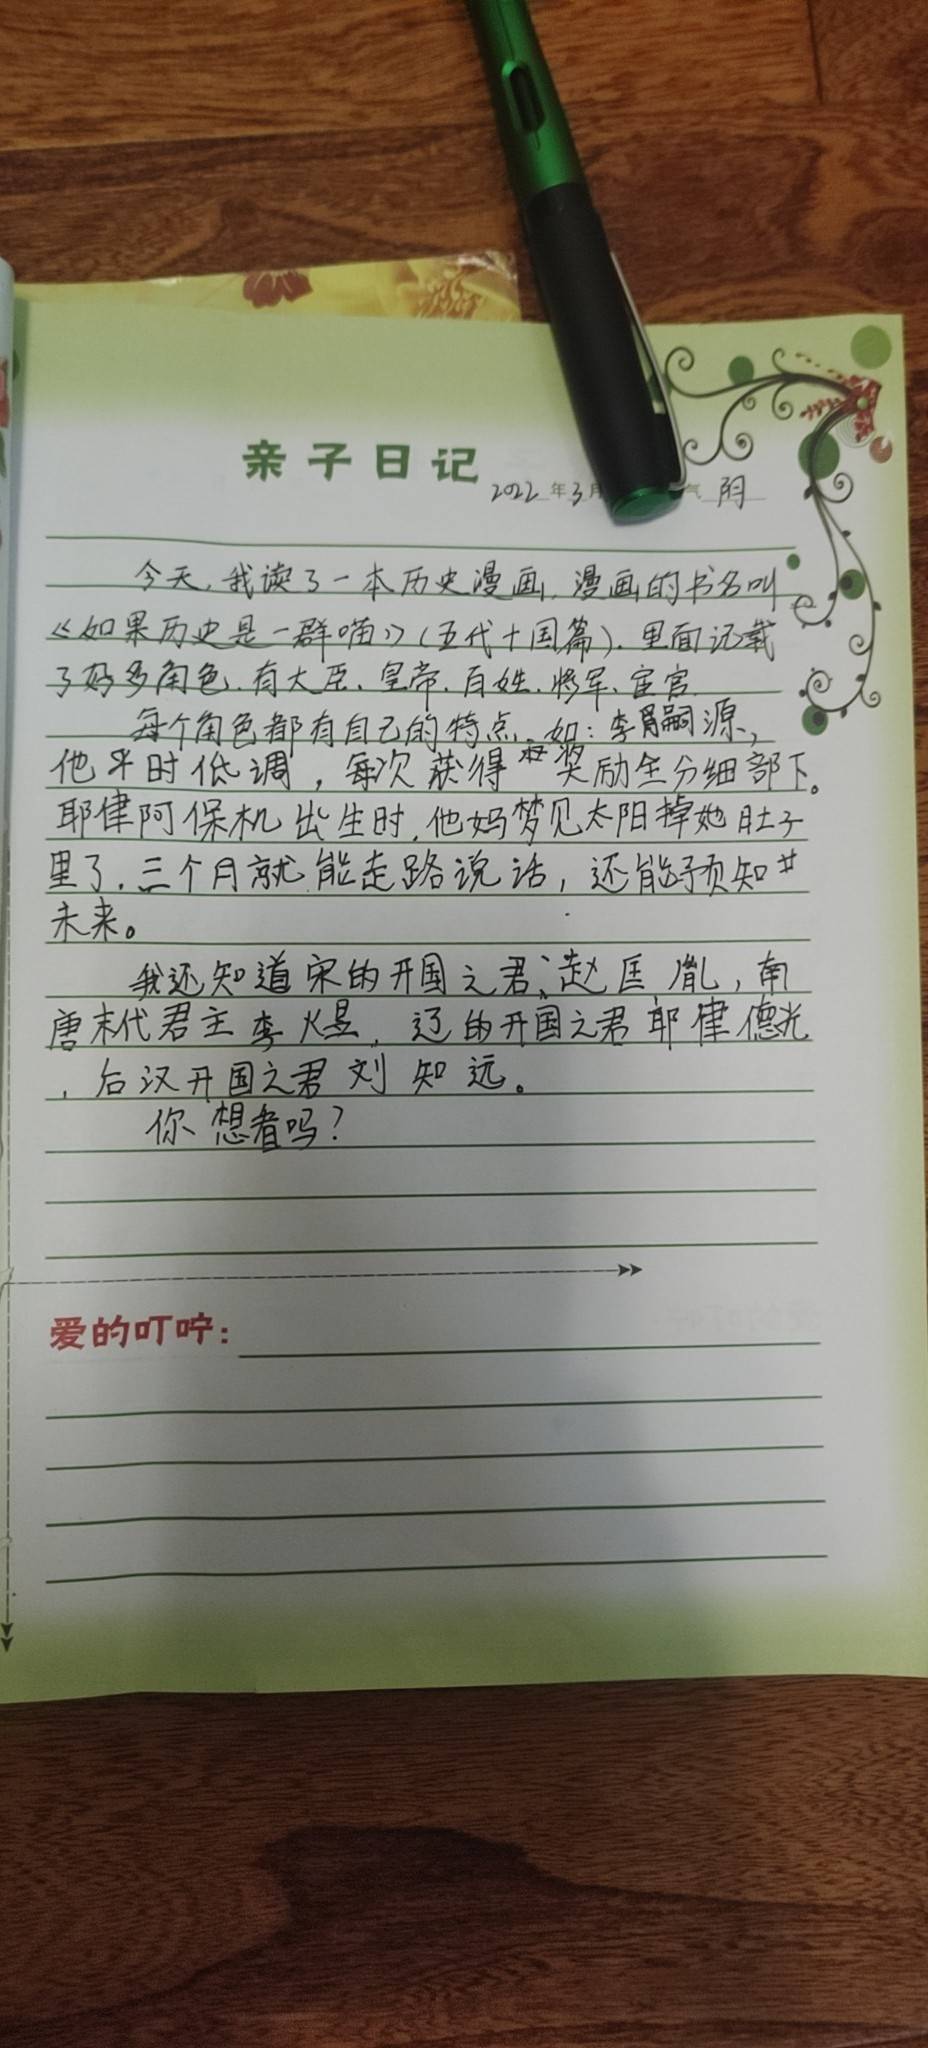 亲子日记
2022年3月 气 阴
今天，我读了一本历史漫画，漫画的书名叫
《如果历史是一群喵》（五代十国篇），里面记载
了好多角色，有大臣、皇帝、百姓、将军、宦官
每个角色都有自己的特点，如：李嗣源，
他平时低调，每次获得奖励全分细部下。
耶律阿保机出生时，他妈梦见太阳掉她肚子
里了，三个月就能走路说话，还能预知
未来。
我还知道宋的开国之君、赵匡胤，南
唐末代君主李煜，辽的开国之君耶律德光
，后汉开国之君刘知远。
你想看吗？
爱的叮咛：